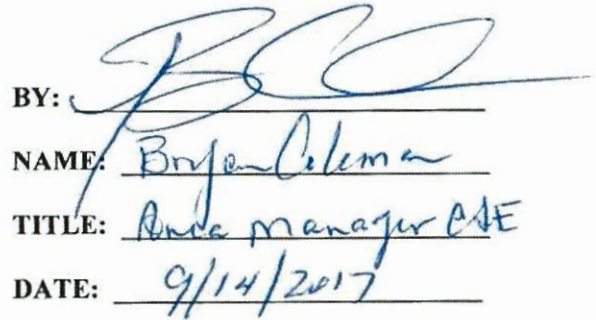 BY:
NAME: Bryan Coleman
TITLE: Area Manager
DATE: 9/14/2017